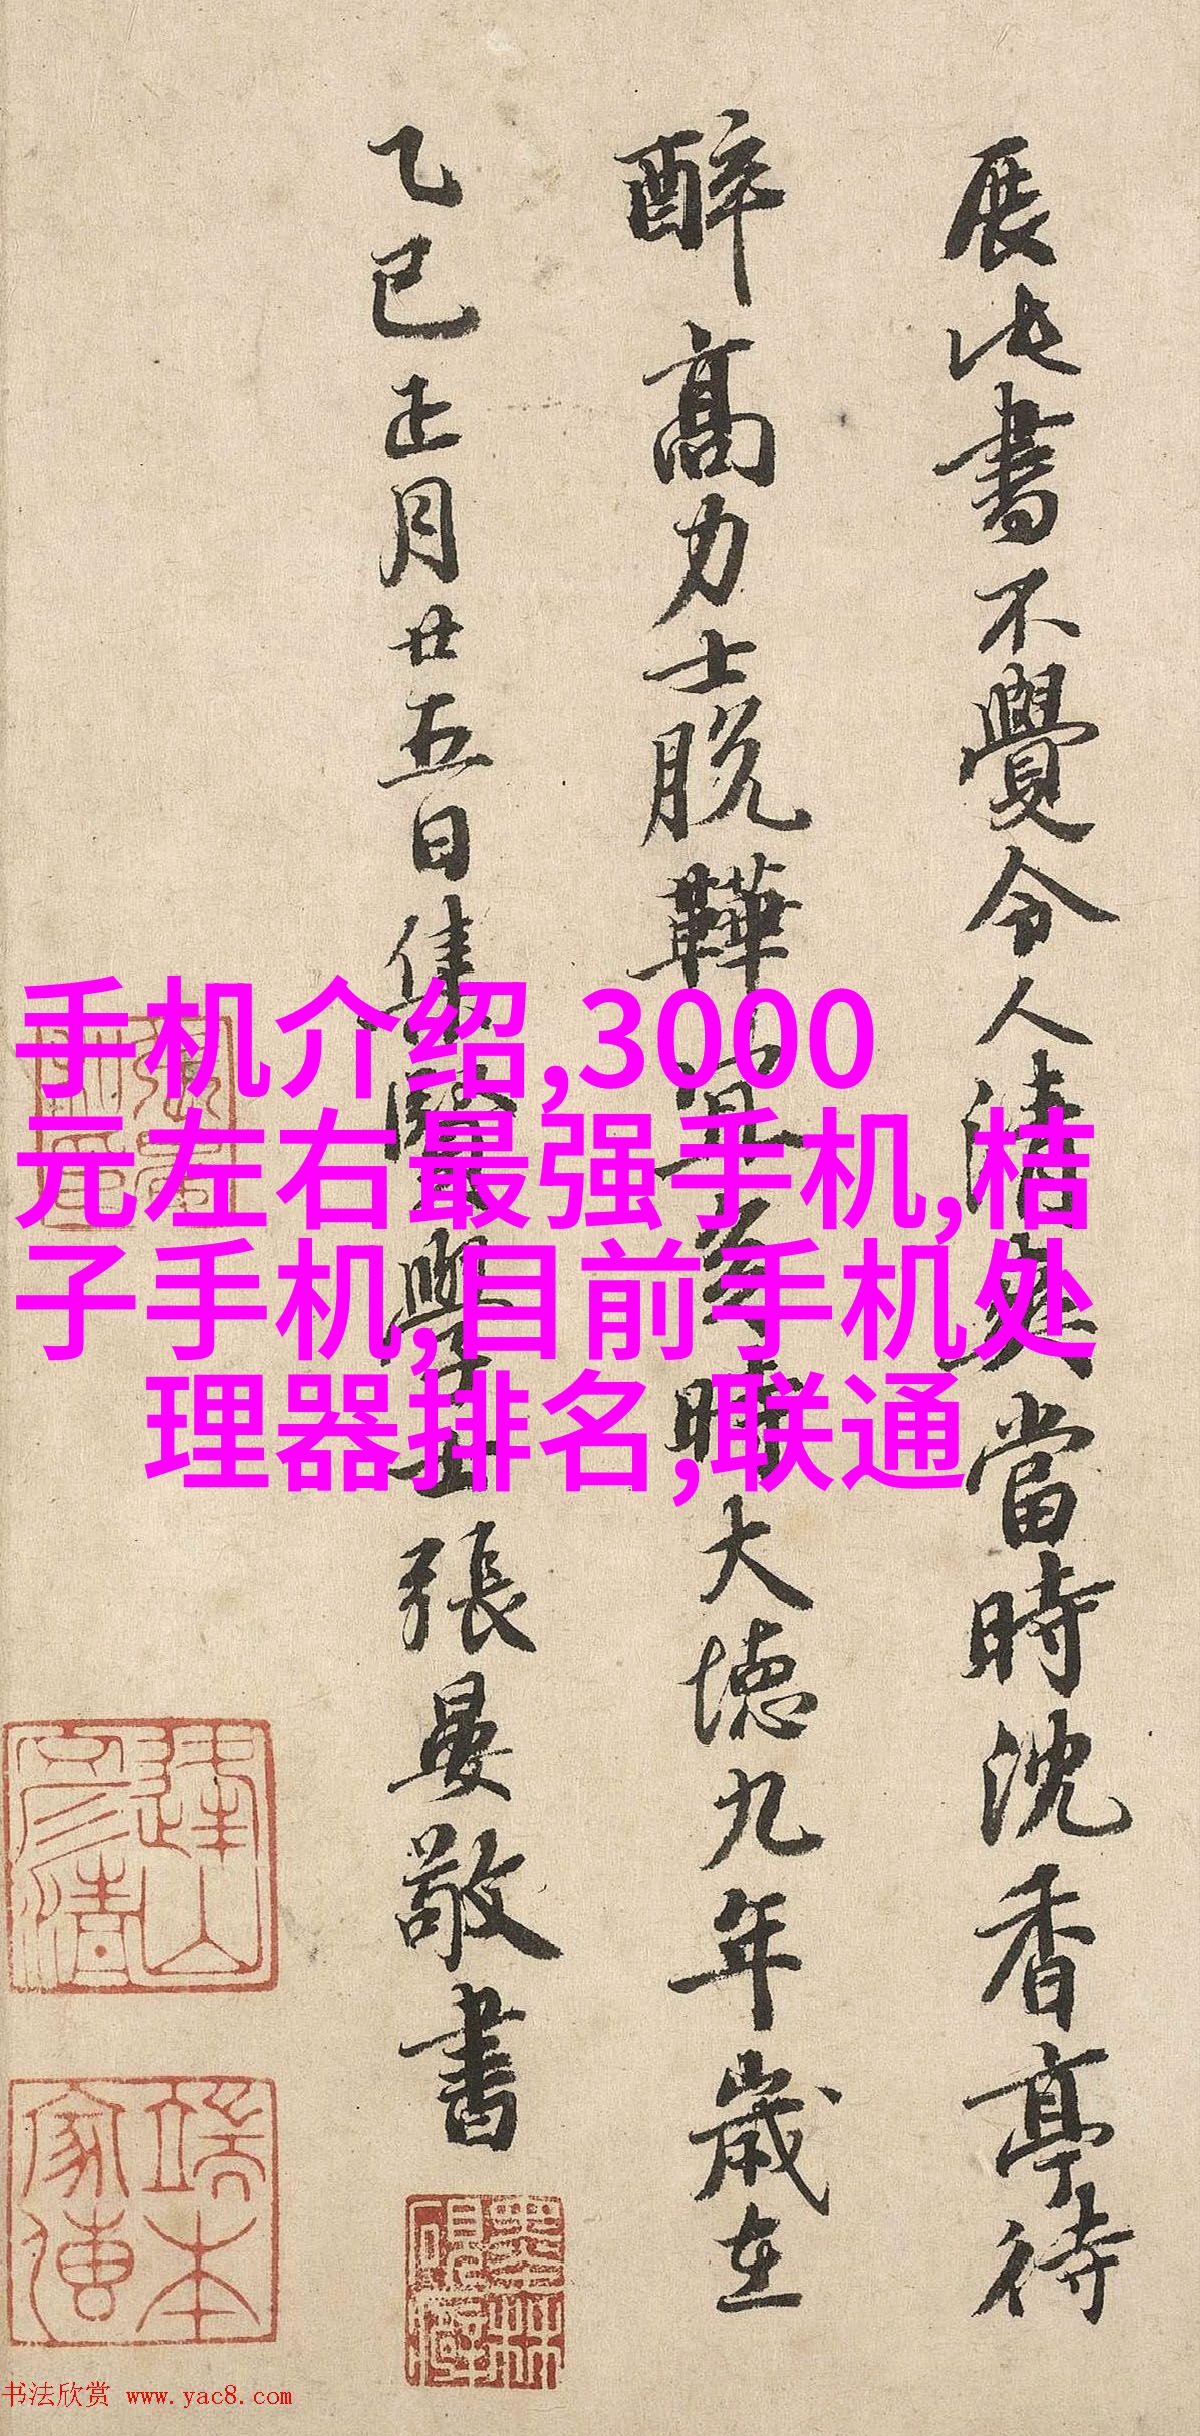 展此書不覺令人清爽當時沈香亭待
醉高力士脱鞾宜多時大徳九年歲在
乙巳正月廿五日集賢學士張晏敬書
手机介绍,3000
元左右最强手机,桔
子手机,目前手机处
理器排名,联通
书法欣赏 www.yac8.com